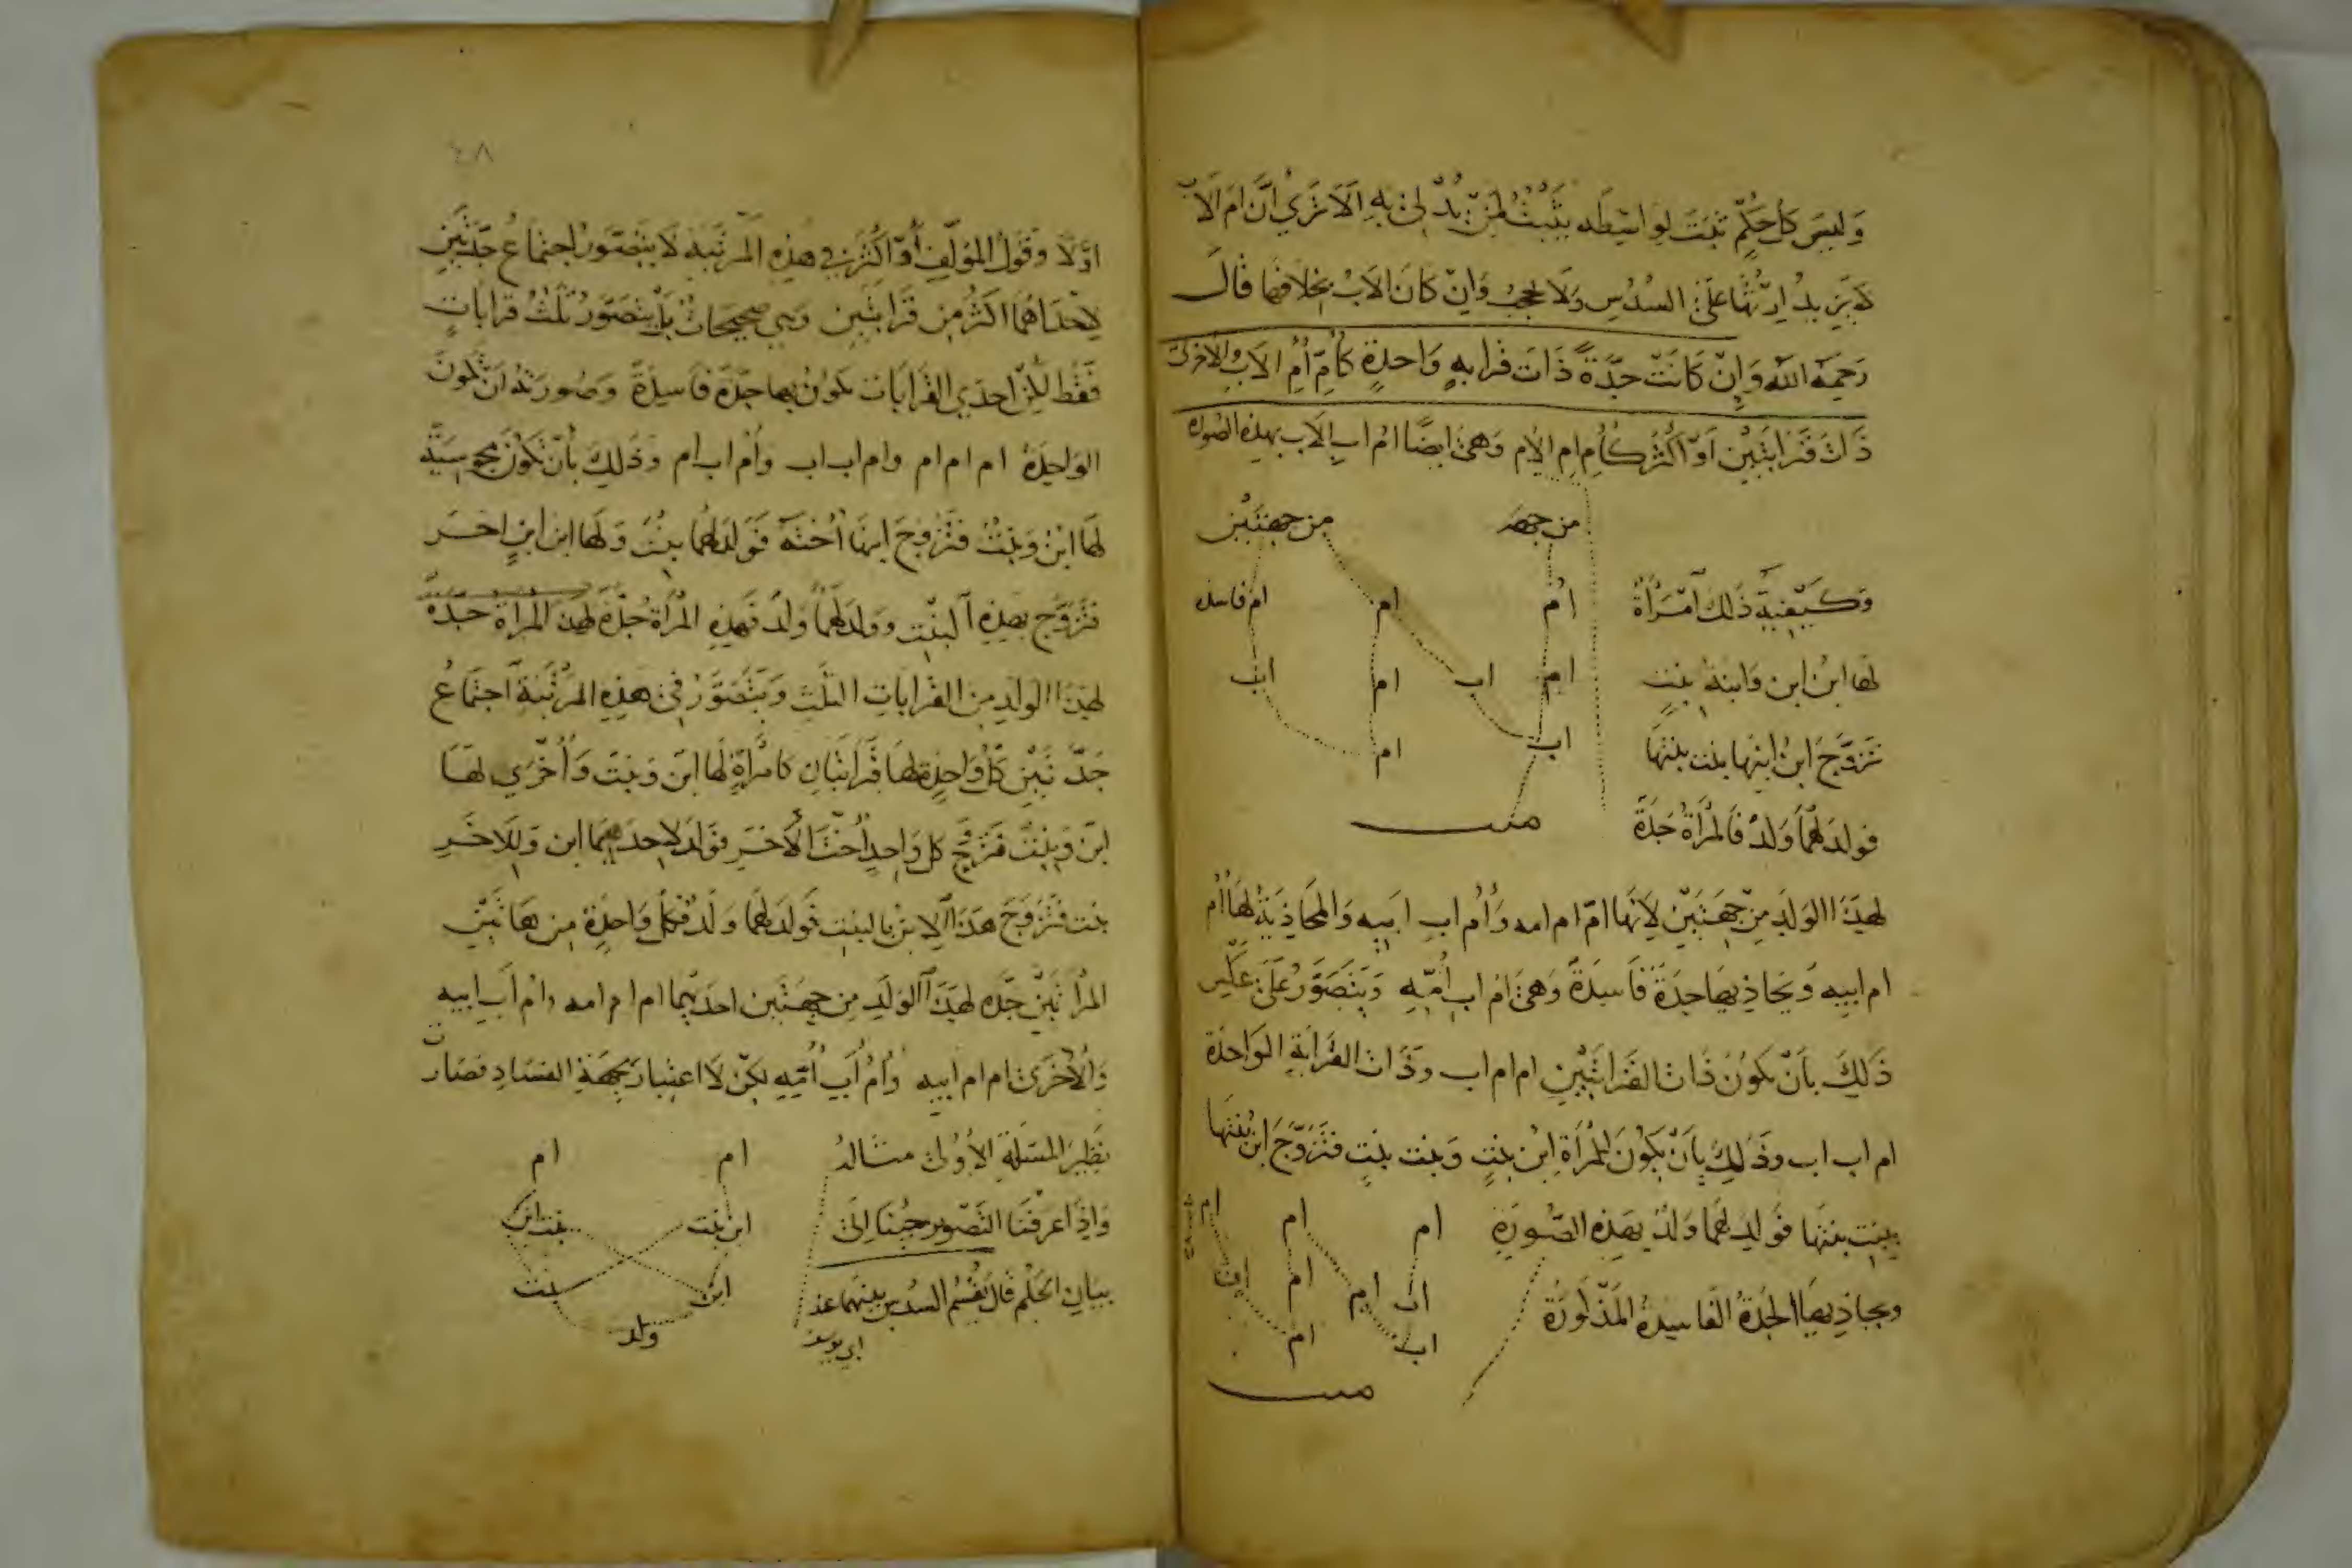 وَليسَ كل حكمٍ ثبتَ لواسطه يثبتُ لمن يُدلى به الا ترى ان ام الاب
لا يزيد ارثها على السدس ولا تحجب وان كان الاب بخلافها قال
رحمه الله وان كانت جدة ذات قرابه واحدة كام ام الاب والاخرى
ذات قرابتين او اكثر كام ام الام وهى ايضا ام اب الاب بهذه الصوره
من جهه من جهتين
ام ام ام فاسده
ام اب ام اب
اب ام
ميت
وكيفية ذلك امرأة
لها ابن ابن وابنة بنت
تزوج ابن ابنها بنت بنتها
فولد لهما ولد فالمرأة جدة
لهذا الولد من جهتين لانها ام ام امه وام اب ابيه والمحاذية لها ام
ام ابيه ويحاذيها جدة فاسدة وهى ام اب امه ويتصور على عكس
ذلك بان يكون ذات القرابتين ام ام اب وذات القرابة الواحدة
ام اب اب وذلك بان يكون للمرأة ابن بنت وبنت بنت فتزوج ابن بنتها
ببنت بنتها فولد لهما ولد بهذه الصورة
ويحاذيها الجدة الفاسدة المذكورة
ام ام ام
اب ام ام اب
اب ام
ميت
٤٨
اولا وقول المؤلف او اكثر فى هذه المرتبة لا يتصور اجتماع جدتين
لاحداهما اكثر من قرابتين وهى صحيحات بل يتصور ثلث قرابات
فقط لكن احدى القرابات تكون بها جدة فاسدة وصورته ان تكون
الواحدة ام ام ام وام اب اب وام اب ام وذلك بان تكون مجوسية
لها ابن وبنت فتزوج ابنها اخته فولد لهما بنت ولها ابن ابن اخر
فتزوج بهذه البنت وولد لهما ولد فهذه المرأة جدة لهذ المراة جدة
لهذا الولد من القرابات الثلث ويتصور فى هذه المرتبة اجتماع
جدتين كل واحدة لها قرابتان كامراة لها ابن وبنت واخرى لها
ابن وبنت فتزوج كل واحد اخت الاخر فولد لاحدهما ابن وللاخر
بنت فتزوج هذا الابن بالبنت فولد لهما ولد فكل واحدة من هاتين
المرأتين جده لهذا الولد من جهتين احديهما ام ام امه وام اب ابيه
والاخرى ام ام ابيه وام اب امه لكن لا اعتبار بجهة الفساد فصارت
نظير المسئلة الاولى مثاله
واذا عرفنا التصوير جئنا الى
بيان الحكم قال يقسم السدس بينهما عند
ابى يوسف
ام ام
ابن بنت بنت ابن
ابن بنت
ولد